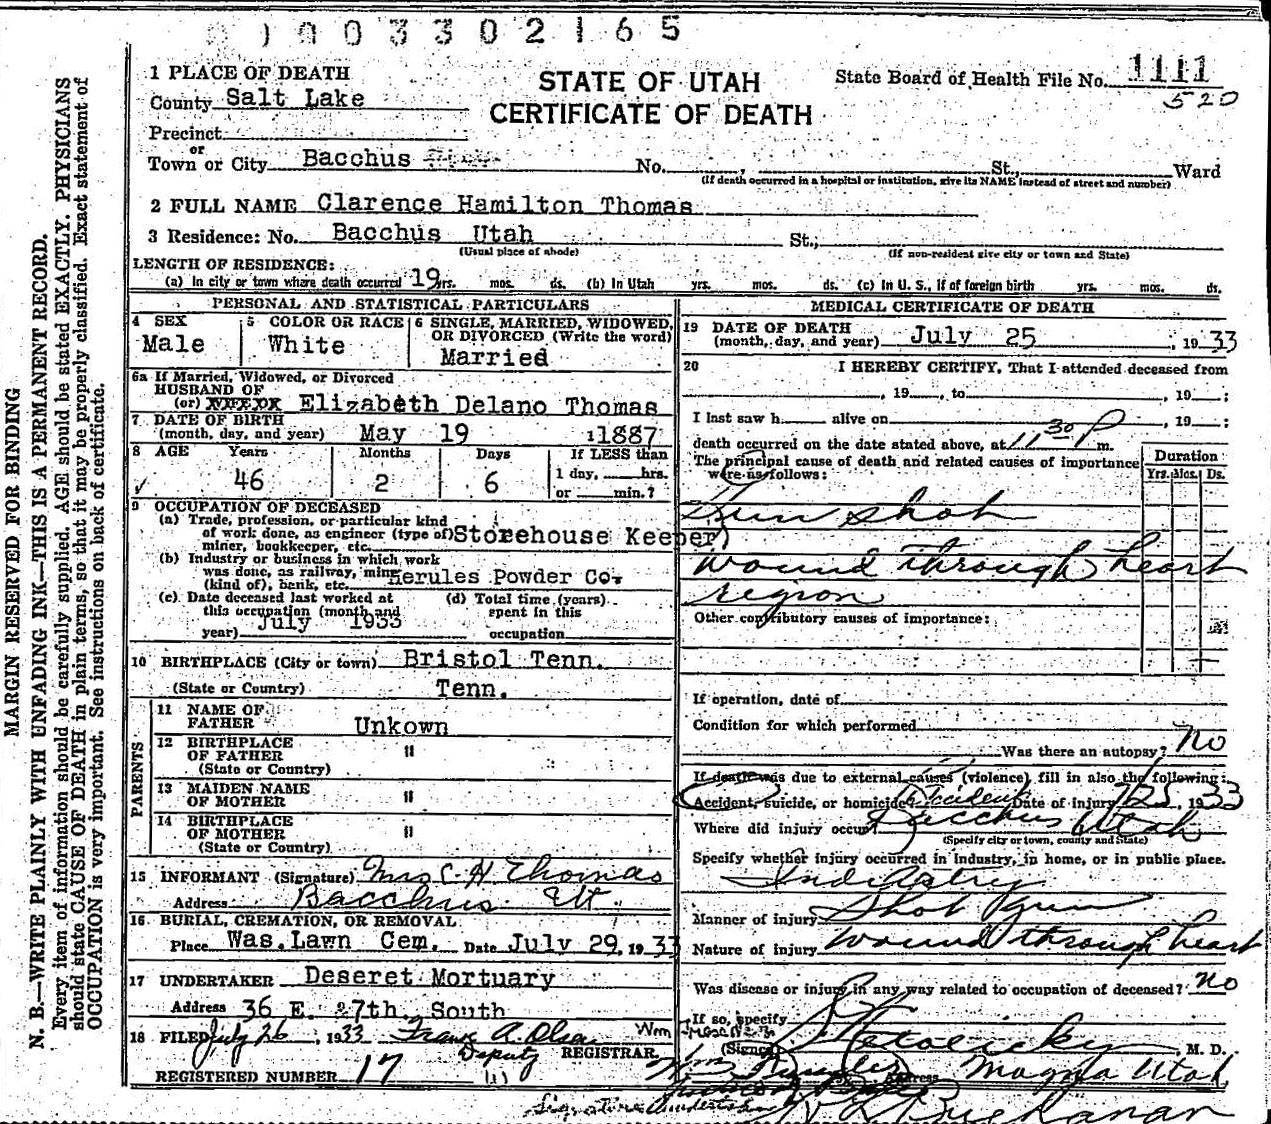 0 0 3 3 0 2 1 6 5
1 PLACE OF DEATH
County Salt Lake
STATE OF UTAH
CERTIFICATE OF DEATH
State Board of Health File No. 1111
520
Precinct
or
Town or City Bacchus
No. , St., Ward
(If death occurred in a hospital or institution, give its NAME instead of street and number)
2 FULL NAME Clarence Hamilton Thomas
3 Residence: No. Bacchus Utah St.,
(Usual place of abode) (If non-resident give city or town and State)
LENGTH OF RESIDENCE:
(a) In city or town where death occurred 19 yrs. mos. ds. (b) In Utah yrs. mos. ds. (c) In U. S., if of foreign birth yrs. mos. ds.
PERSONAL AND STATISTICAL PARTICULARS
4 SEX
Male
5 COLOR OR RACE
White
6 SINGLE, MARRIED, WIDOWED,
OR DIVORCED (Write the word)
Married
6a If Married, Widowed, or Divorced
HUSBAND OF
(or) Elizabeth Delano Thomas
7 DATE OF BIRTH
(month, day, and year) May 19 1887
8 AGE Years Months Days If LESS than
46 2 6 1 day, hrs.
or min.?
9 OCCUPATION OF DECEASED
(a) Trade, profession, or particular kind
of work done, as engineer (type of) Storehouse Keeper)
miner, bookkeeper, etc.
(b) Industry or business in which work
was done, as railway, mine
(kind of), bank, etc. Herules Powder Co.
(c) Date deceased last worked at
this occupation (month and
year) July 1933
(d) Total time (years)
spent in this
occupation
10 BIRTHPLACE (City or town) Bristol Tenn.
(State or Country) Tenn.
PARENTS
11 NAME OF
FATHER Unkown
12 BIRTHPLACE
OF FATHER "
(State or Country)
13 MAIDEN NAME
OF MOTHER "
14 BIRTHPLACE
OF MOTHER "
(State or Country)
15 INFORMANT (Signature) Mrs C. H Thomas
Address Bacchus Ut
16 BURIAL, CREMATION, OR REMOVAL
Place Was.Lawn Cem. Date July 29, 1933
17 UNDERTAKER Deseret Mortuary
Address 36 E. 27th South
18 FILED July 26, 1933 Frank A. Olsen
Deputy REGISTRAR.
REGISTERED NUMBER 17
MEDICAL CERTIFICATE OF DEATH
19 DATE OF DEATH
(month, day, and year) July 25, 1933
20 I HEREBY CERTIFY, That I attended deceased from
, 19 , to , 19 ;
I last saw h alive on , 19 ;
death occurred on the date stated above, at 11 30 P m.
The principal cause of death and related causes of importance
were as follows:
Duration
Yrs. Mos. Ds.
Gun shot
wound through heart
region
Other contributory causes of importance:
If operation, date of
Condition for which performed
Was there an autopsy? No
If death was due to external causes (violence) fill in also the following:
Accident, suicide, or homicide? Accident Date of injury 7/25, 1933
Where did injury occur? Bacchus Utah
(Specify city or town, county and State)
Specify whether injury occurred in industry, in home, or in public place.
Industry
Manner of injury Shot gun
Nature of injury Wound through heart
Was disease or injury in any way related to occupation of deceased? no
If so, specify
(Signed) , M. D.
Address Magna Utah
Wm
Buchanan
MARGIN RESERVED FOR BINDING
N. B.—WRITE PLAINLY WITH UNFADING INK—THIS IS A PERMANENT RECORD.
Every item of information should be carefully supplied. AGE should be stated EXACTLY. PHYSICIANS
should state CAUSE OF DEATH in plain terms, so that it may be properly classified. Exact statement of
OCCUPATION is very important. See instructions on back of certificate.